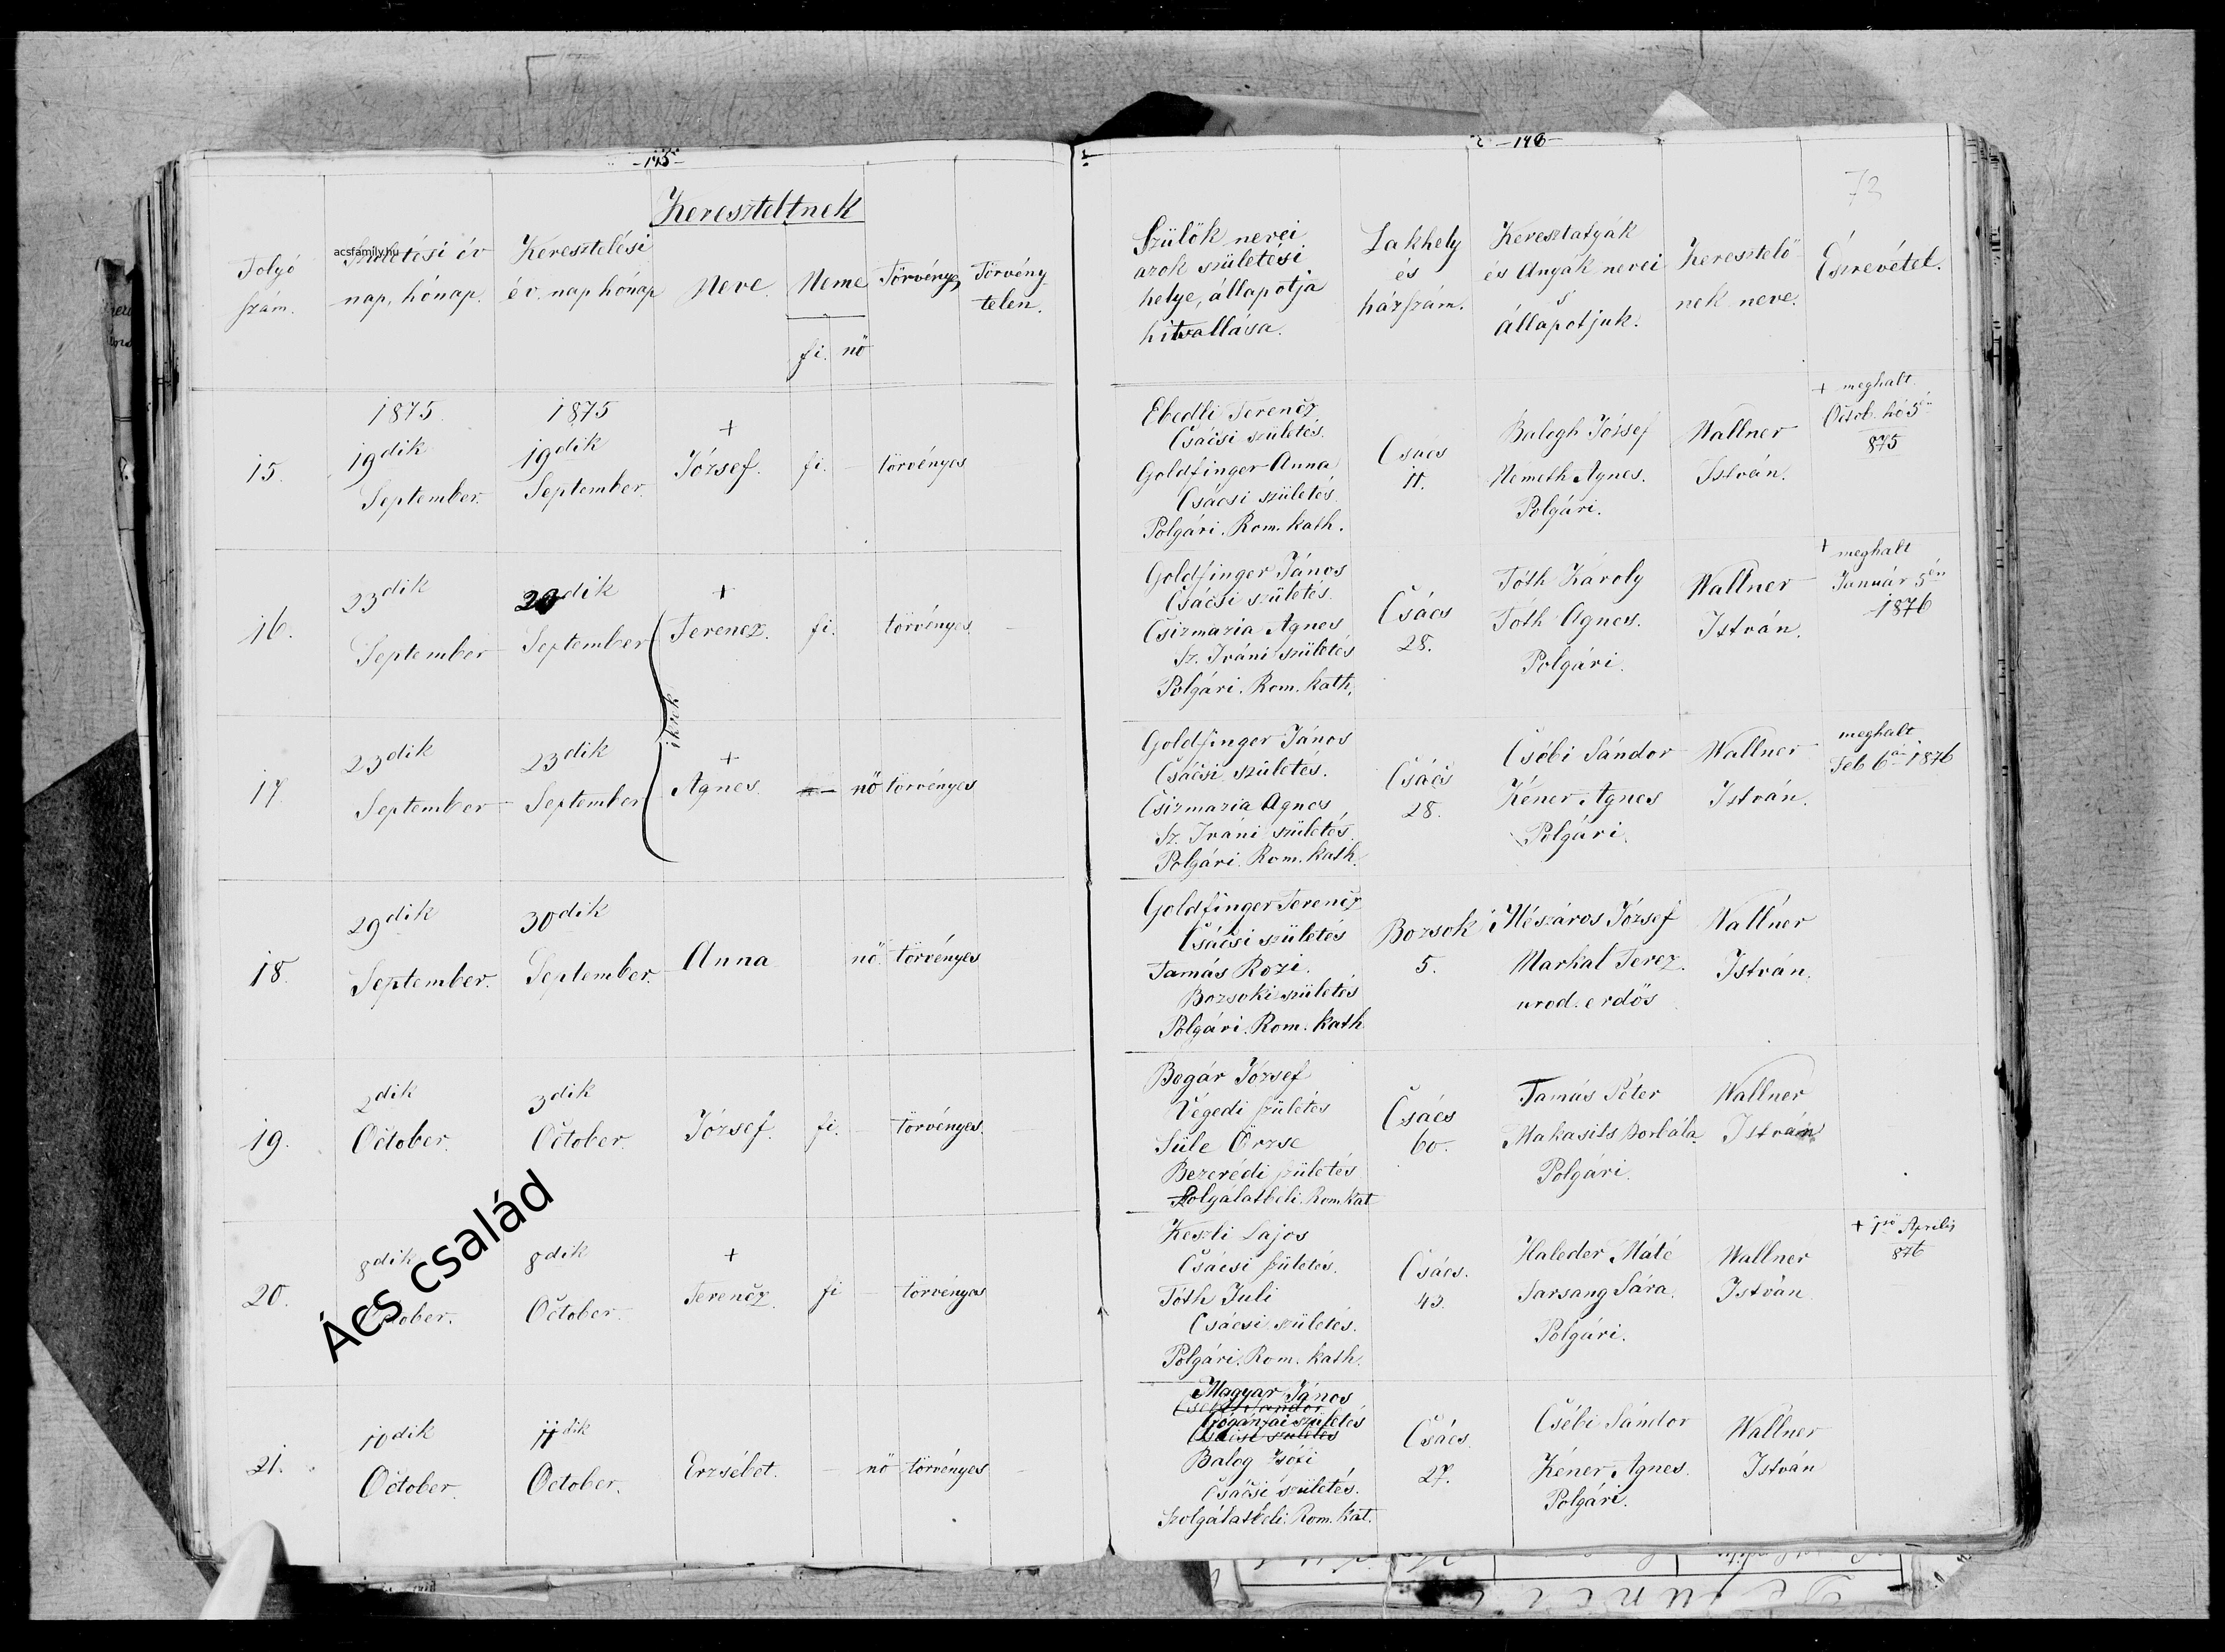 -145-
Kereszteltnek
Folyó
szám.
Születési év
nap, hónap.
acsfamily.hu
Keresztelési
év. nap hónap
Neve.
Neme
fi. nö
Törvényes
Törvény-
telen.
-146-
73
Szülők nevei
azok születési
helye, állapotja
hitvallása.
Lakhely
és
házszám.
Keresztatyák
és Anyák nevei
s
állapotjuk.
Keresztelő-
nek neve.
Észrevétel.
15.
1875.
19dik
September.
1875
19dik
September.
+
József.
fi. —
törvényes
Ebedli Ferencz
Csácsi születés.
Goldfinger Anna
Csácsi születés.
Polgári. Rom. kath.
Csács
11.
Balogh József
Németh Agnes.
Polgári.
Wallner
István.
+ meghalt
Octob. hó 5én
875
16.
23dik
September
dik
September
+
Ferencz.
fi.
törvényes
Goldfinger János
Csácsi születés.
Csizmazia Agnes
Sz. Iváni születés
Polgári. Rom. kath.
Csács
28.
Tóth Károly
Tóth Agnes.
Polgári.
Wallner
István.
+ meghalt
Január 5én
1876
ikrek
17.
23dik
September
23dik
September
+
Agnes.
nö
törvényes
Goldfinger János
Csácsi születés.
Csizmazia Agnes
Sz. Iváni születés.
Polgári. Rom. kath.
Csács
28.
Csóbi Sándor
Kéner Agnes
Polgári.
Wallner
István.
meghalt
Feb 6án 1876
18.
29dik
September.
30dik
September.
Anna
nö.
törvényes
Goldfinger Ferencz
Csácsi születés
Tamás Rozi.
Bozsoki születés
Polgári. Rom. kath
Bozsok
5.
Mészáros József
Markal Terez.
urod. erdős
Wallner
István.
19.
2dik
October.
3dik
October.
József.
fi. —
törvényes.
Bogár József
Végedi születés
Süle Örzse
Bezerédi születés
Szolgálatbeli. Rom. Kat
Csács
60.
Tamás Péter
Makasits Borbála
Polgári.
Wallner
István
20.
8dik
October.
8dik
October.
+
Ferencz.
fi —
törvényes
Keszli Lajos
Csácsi születés.
Tóth Juli
Csácsi születés.
Polgári. Rom. kath.
Csács.
43.
Haleder Máté
Sarsang Sára.
Polgári.
Wallner
István
+ 1ső Aprelis
876
Ács család
21.
10dik
October.
11dik
October.
Erzsébet.
— nö
törvényes
Magyar János
Gógánfai születés
Csácsi születés
Balog Zsófi
Csácsi születés.
Szolgálatbeli. Rom. Kat.
Csács.
27.
Csébi Sándor
Kéner Agnes.
Polgári.
Wallner
István